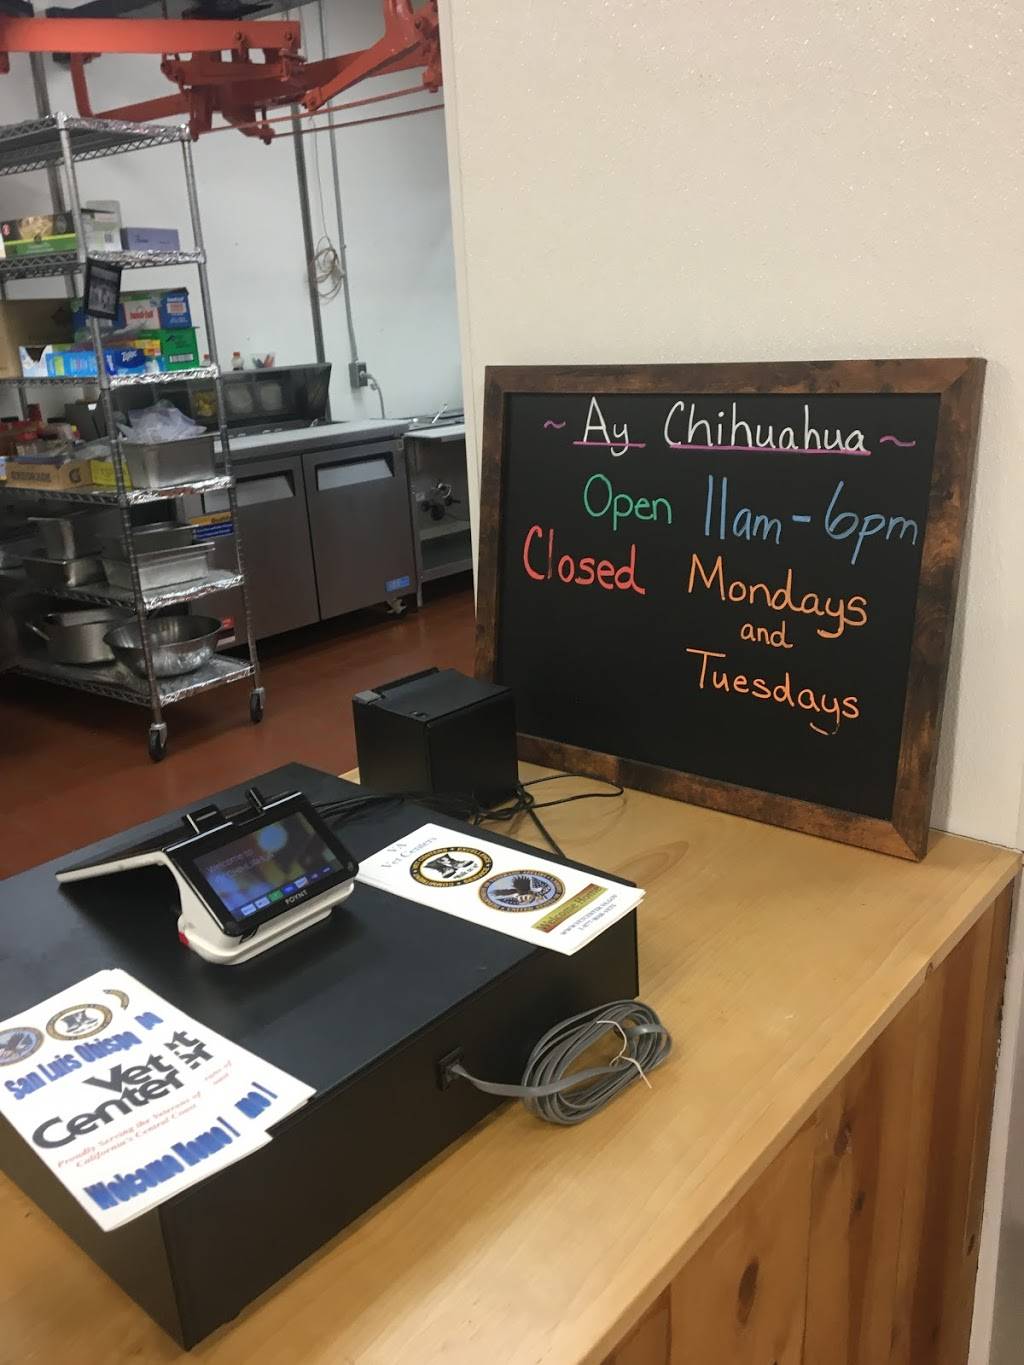 ~ Ay Chihuahua ~
Open 11am-6pm
Closed Mondays
and
Tuesdays
VA
Vet Centers
Welcome Home!
Welcome to
POYNT
San Luis Obispo
Vet
Center
Proudly Serving the Veterans of
California's Central Coast
Welcome Home!